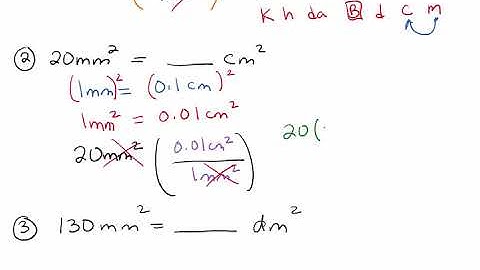 K h da B d c m
② 20mm² = ___ cm²
(1mm)² = (0.1cm)²
1mm² = 0.01cm²
20mm² (0.01cm² / 1mm²) 20(
③ 130mm² = ___ dm²